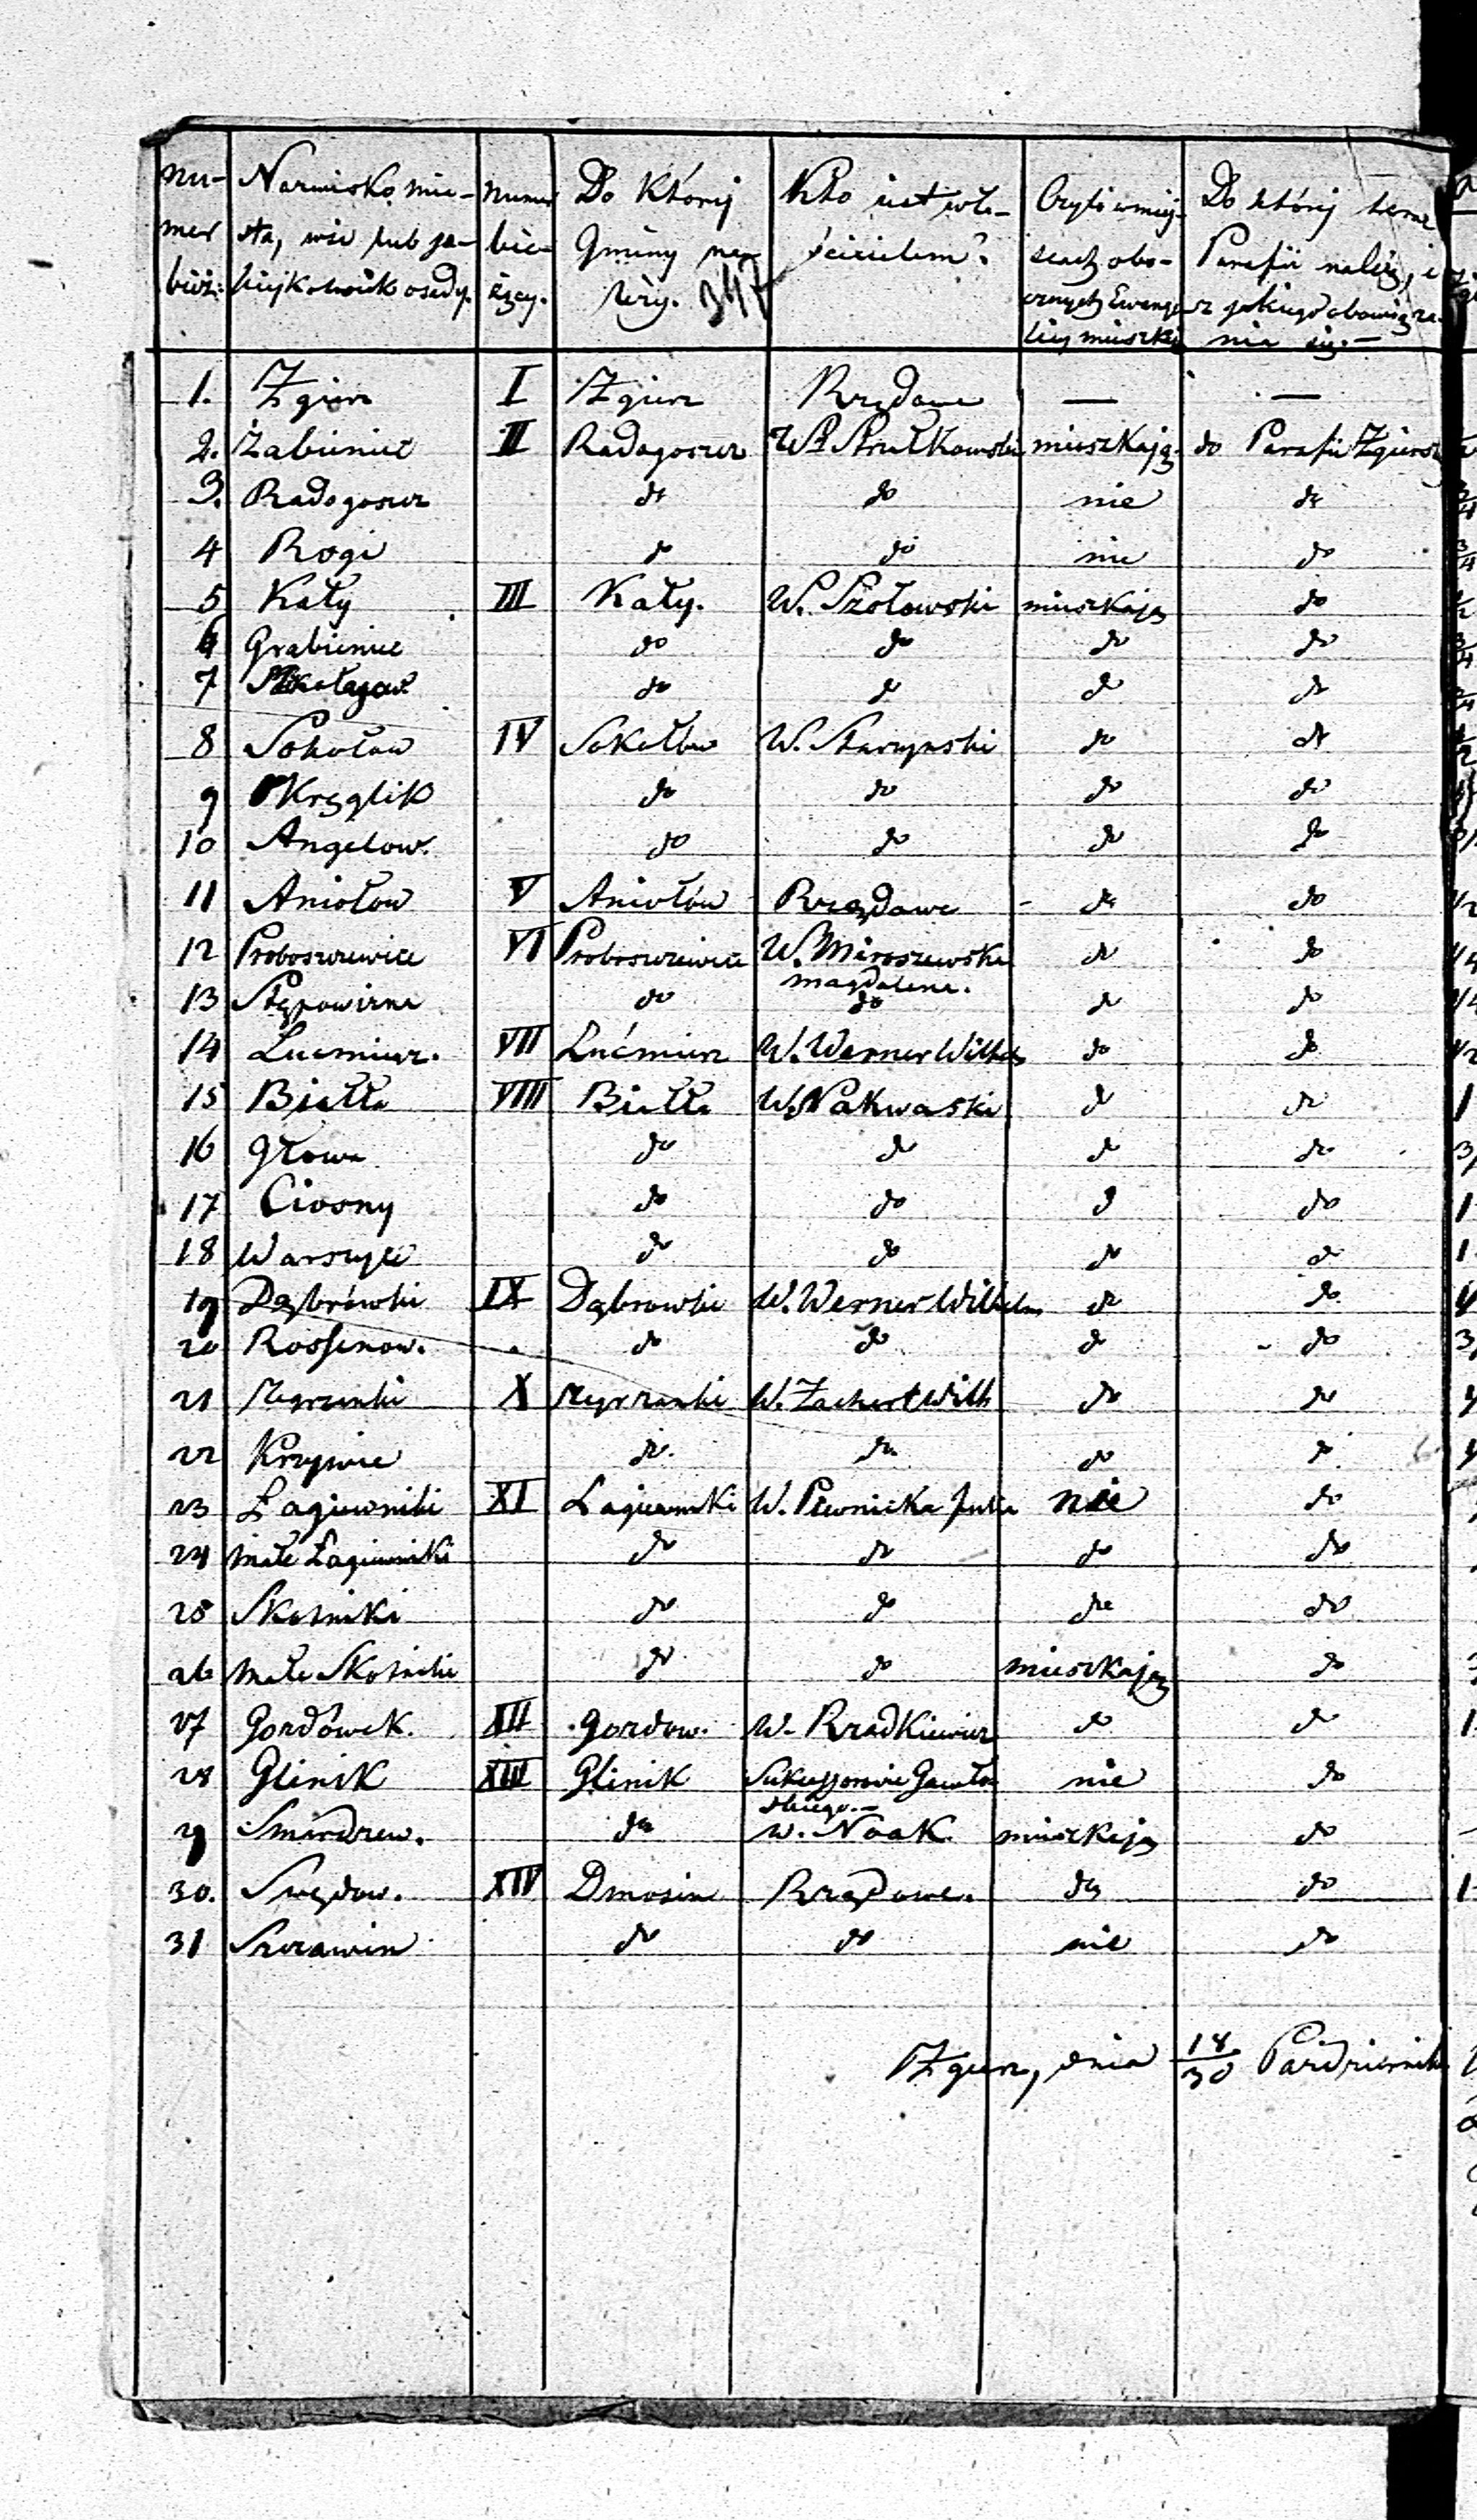 nu- Nazwisko mia- numer Do której Kto jest wła- Czyli w miej- Do której teraz
mer sta, wsi lub ja- bie- Gminy na- ścicielem? scach obo- Parafii należy, i
bież: kiejkolwiek osady. żący. leży. 347 cznych Ewange- z jakiego obowiąza-
licy mieszkają nia się.—
1. Zgierz I Zgierz Rządowe — —
2. Żabieniec II Radogoszcz W. Strułkowski mieszkają do Parafii Zgiersk
3. Radogoszcz do do nie do
4 Rogi do do nie do
5 Kały III Kały. W. Szołowski mieszkają do
6 Grabieniec do do do do
7 Mikołajew. do do do do
8 Sokołow IV Sokołow W. Starzynski do do
9 Kręglik do do do do
10 Angelow. do do do do
11 Aniołow V Aniołów Rządowe - do do
12 Proboszczewice VI Proboszczewice W. Miroszewska do do
Magdalena.
13 Stępowizna do do do do
14 Lucmierz. VII Lućmierz W. Werner Wilhelm do do
15 Biała VIII Biała W. Nakwaski do do
16 Głowa do do do do
17 Ciosny do do do do
18 Warszyce do do do do
19 Dąbrówki IX Dąbrowki W. Werner Wilhelm do do
20 Rossenow. do do do do
21 Zegrzanki X Zegrzanki W. Zachert Wilh do do
22 Krzywie do. do do do
23 Łagiewniki XI Łagiewniki W. Piwnicka Julia nie do
24 małe Łagiewniki do do do do
25 Skotniki do do do do
26 małe Skotniki do do mieszkają do
27 Gordówek. XII Gordow. W. Rzadkiewicz do do
28 Glinik XIII Glinik Sukcessorowie nie do
skiego.—
29 Smardzew. do W. Noak. mieszkają do
30. Swędow. XIV Dmosin Rządowe. do do
31 Szczawin do do nie do
Zgierz, dnia 18/30 Październik